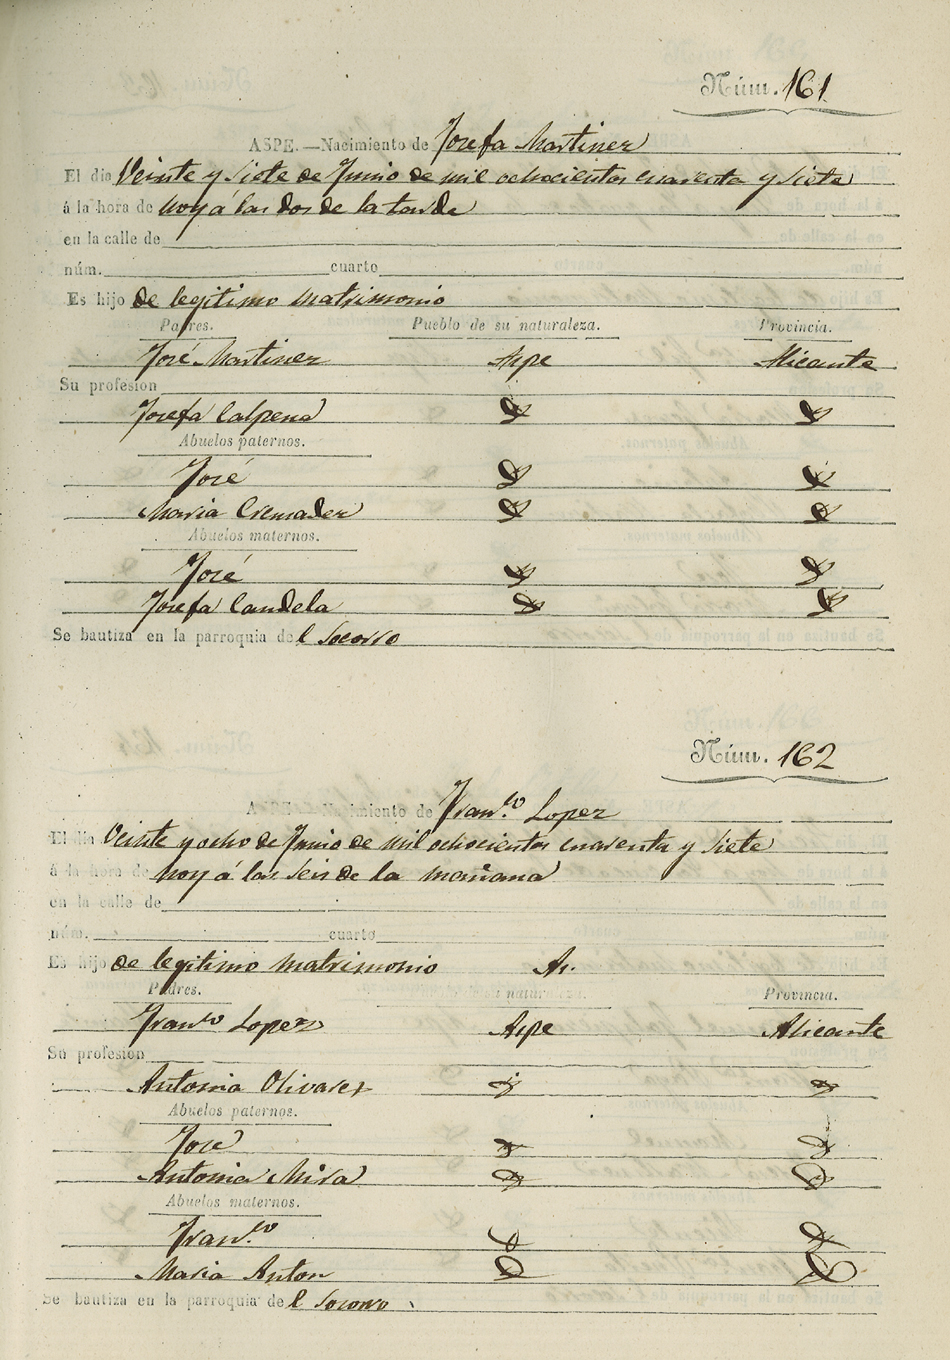 Núm. 161
ASPE.—Nacimiento de Josefa Martinez
El dia Veinte y Siete de Junio de mil ochocientos cuarenta y Siete
á la hora de hoy á las dos de la tarde
en la calle de
núm. cuarto
Es hijo de legitimo matrimonio
Padres. Pueblo de su naturaleza. Provincia.
José Martinez Aspe Alicante
Su profesion
Josefa Calpena
Abuelos paternos.
José
Maria Cremades
Abuelos maternos.
José
Josefa Candela
Se bautiza en la parroquia del Socorro
Núm. 162
ASPE.—Nacimiento de Fran.co Lopez
El dia Veinte y ocho de Junio de mil ochocientos cuarenta y Siete
á la hora de hoy á las seis de la mañana
en la calle de
núm. cuarto
Es hijo de legitimo matrimonio As.
Padres. naturaleza. Provincia.
Franco Lopez Aspe Alicante
Su profesion
Antonia Olivares
Abuelos paternos.
José
Antonia Mira
Abuelos maternos.
Fran.co
Maria Anton
Se bautiza en la parroquia del Socorro